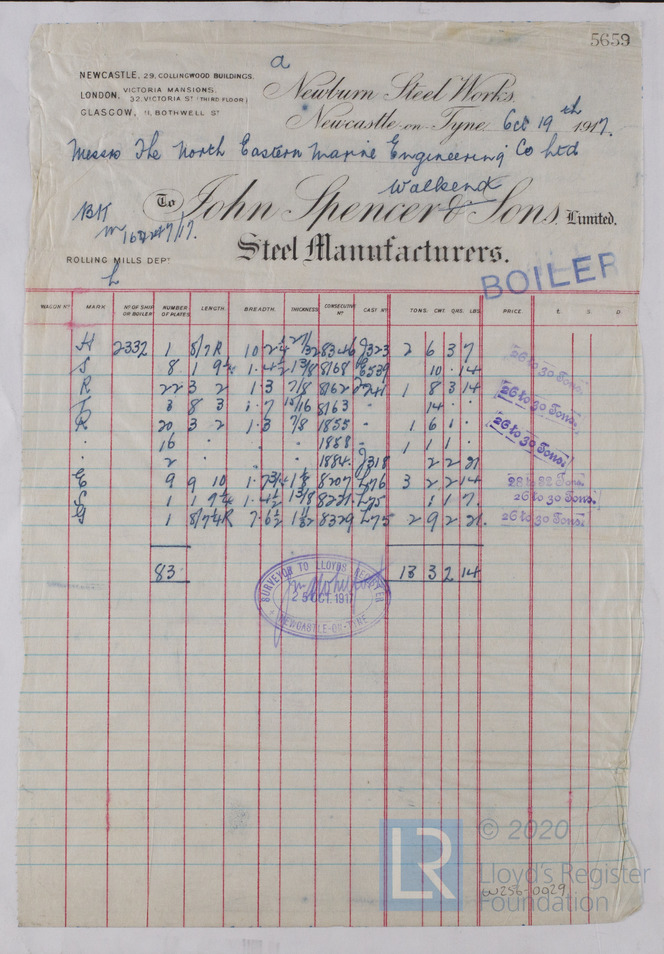 5659
a
NEWCASTLE, 29, COLLINGWOOD BUILDINGS.
LONDON, VICTORIA MANSIONS, 32, VICTORIA ST (THIRD FLOOR)
GLASGOW, 11, BOTHWELL ST
Newburn Steel Works,
Newcastle-on-Tyne Oct 19th 1917.
Messrs The North Eastern Marine Engineering Co Ltd
Wallsend
To John Spencer & Sons, Limited.
Steel Manufacturers.
ROLLING MILLS DEPT
BOILER
WAGON No MARK No OF SHIP OR BOILER NUMBER OF PLATES LENGTH. BREADTH. THICKNESS CONSECUTIVE No CAST No TONS. CWT. QRS. LBS. PRICE. £. S. D.
H 2332 1 8/7R 10 8346 J323 2 6 3 7 26 to 30 Tons.
S 8 1 1 13/8 8168 6539 10 . 14
R 22 3 2 1.3 7/8 8162 1 8 3 14 26 to 30 Tons.
3 8 3 1.7 15/16 8163 . 14 . .
R 20 3 2 1.3 7/8 1855 . 1 6 1 . 26 to 30 Tons.
. 16 . . . 1858 . 1 1 1 .
. 2 . . . 1884. J318 2 2 21
E 9 9 10 8207 L76 3 2 2 14 28 to 32 Tons.
S 1 13/8 8221 L75 1 1 7 26 to 30 Tons.
G 1 8329 L75 2 9 2 21. 26 to 30 Tons.
83 13 3 2 14
SURVEYOR TO LLOYDS REGISTER
25 OCT. 1917
NEWCASTLE-ON-TYNE
LR
© 2020
Lloyd's Register
Foundation
W256-0029